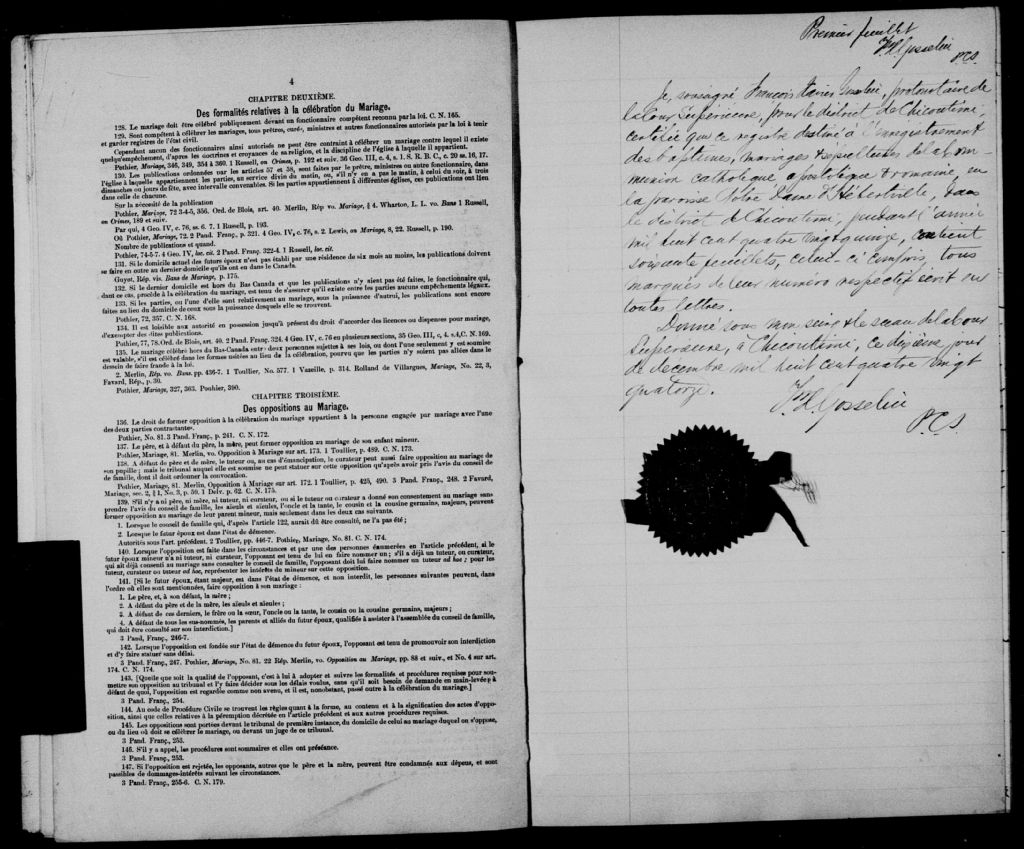 4
CHAPITRE DEUXIÈME.
Des formalités relatives à la célébration du Mariage.
128. Le mariage doit être célébré publiquement devant un fonctionnaire compétent reconnu par la loi. C. N. 165.
129. Sont compétents à célébrer les mariages, tous prêtres, curés, ministres et autres fonctionnaires autorisés par la loi à tenir
et garder registres de l'état civil.
Cependant aucun des fonctionnaires ainsi autorisés ne peut être contraint à célébrer un mariage contre lequel il existe
quelqu'empêchement, d'après les doctrines et croyances de sa religion, et la discipline de l'église à laquelle il appartient.
Pothier, Mariage, 346, 349, 354 à 360. 1 Russell, on Crimes, p. 192 et suiv. 36 Geo. III, c. 4, s. 1. S. R. B. C., c. 20 ss. 16, 17.
130. Les publications ordonnées par les articles 57 et 58, sont faites par le prêtre, ministre ou autre fonctionnaire, dans
l'église à laquelle appartiennent les parties, au service divin du matin, ou, s'il n'y en a pas le matin, à celui du soir, à trois
dimanches ou jours de fête, avec intervalle convenables. Si les parties appartiennent à différentes églises, ces publications ont lieu
dans celle de chacune.
Sur la nécessité de la publication
Pothier, Mariage, 72 3-4-5, 356. Ord. de Blois, art. 40. Merlin, Rép vo. Mariage, § 4. Wharton, L. L. vo. Bans 1 Russell,
on Crimes, 189 et suiv.
Par qui, 4 Geo. IV, c. 76, ss. 6. 7. 1 Russell, p. 193.
Où Pothier, Mariage, 72. 2 Pand. Franç., p. 321. 4 Geo. IV, c. 76, s. 2. Lewis, on Mariage, 8, 22. Russell, p. 190.
Nombre de publications et quand.
Pothier, 74-5-7. 4 Geo. IV, loc. cit. 2 Pand. Franç. 322-4. 1 Russell, loc. cit.
131. Si le domicile actuel des futurs époux n'est pas établi par une résidence de six mois au moins, les publications doivent
se faire en outre au dernier domicile qu'ils ont eu dans le Canada.
Guyot, Rép. vis. Bans de Mariage, p. 175.
132. Si le dernier domicile est hors du Bas Canada et que les publications n'y aient pas été faites, le fonctionnaire qui,
dans ce cas, procède à la célébration du mariage, est tenu de s'assurer qu'il existe entre les parties aucuns empêchements légaux.
133. Si les parties, ou l'une d'elle sont relativement au mariage, sous la puissance d'autrui, les publications sont encore
faites au lieu du domicile de ceux sous la puissance desquels elle se trouvent.
Pothier, 72, 357. C. N. 168.
134. Il est loisible aux autorité en possession jusqu'à présent du droit d'accorder des licences ou dispenses pour mariage,
d'exempter des dites publications.
Pothier, 77, 78. Ord. de Blois, art. 40. 2 Pand. Franç., 324. 4 Geo. IV, c. 76 en plusieurs sections, 35 Geo. III, c. 4, s. 4, C. N. 169.
135. Le mariage célébré hors du Bas-Canada entre deux personnes sujettes à ses lois, ou dont l'une seulement y est soumise
est valable, s'il est célébré dans les formes usitées au lieu de la célébration, pourvu que les parties n'y soient pas allées dans le
dessein de faire fraude à la loi.
2. Merlin, Rép. vo. Bans. pp. 436-7. 1 Toullier, No. 577. 1 Vazeille, p. 314. Rolland de Villargues, Mariage, No. 22, 3,
Favard, Rép., p. 30.
Pothier, Mariage, 327, 363. Pouhier, 390.
CHAPITRE TROISIÈME.
Des oppositions au Mariage.
136. Le droit de former opposition à la célébration du mariage appartient à la personne engagée par mariage avec l'une
des deux parties contractantes.
Pothier, No. 81. 3 Pand. Franç., p. 241. C. N. 172.
137. Le père, et à défaut du père, la mère, peut former opposition au mariage de son enfant mineur.
Pothier, Mariage, 81. Merlin, vo. Opposition à Mariage sur art. 173. 1 Toullier, p. 489. C. N. 173.
138. A défaut de père et de mère, le tuteur ou, au cas d'émancipation, le curateur peut aussi faire opposition au mariage de
son pupille; mais le tribunal auquel elle est soumise ne peut statuer sur cette opposition qu'après avoir pris l'avis du conseil de
famille, dont il doit ordonner la convocation.
Pothier, Mariage, 81. Merlin, Opposition à Mariage sur art. 172. 1 Toullier, p. 425, 490. 3 Pand. Franç., 248. 2 Favard,
Mariage, sec. 2, § 1, No. 3, p. 59. 1 Delv. p. 62. C. N. 175.
139. S'il n'y a ni père, ni mère, ni tuteur, ni curateur, ou si le tuteur ou curateur a donné son consentement au mariage sans
prendre l'avis du conseil de famille, les aïeuls et aïeules, l'oncle et la tante, le cousin et la cousine germains, majeurs, peuvent
former opposition au mariage de leur parent mineur, mais seulement dans les deux cas suivants.
1. Lorsque le conseil de famille qui, d'après l'article 122, aurait dû être consulté, ne l'a pas été;
2. Lorsque le futur époux est dans l'état de démence.
Autorités sous l'art. précédent. 2 Toullier, pp. 446-7. Pothier, Mariage, No. 81. C. N. 174.
140. Lorsque l'opposition est faite dans les circonstances et par une des personnes énumérées en l'article précédent, si le
futur époux mineur n'a ni tuteur, ni curateur, l'opposant est tenu de lui en faire nommer un; s'il a déjà un tuteur, ou curateur,
qui ait déjà consenti au mariage sans consulter le conseil de famille, l'opposant doit lui faire nommer un tuteur ad hoc; pour les
tuteur, curateur ou tuteur ad hoc, représenter les intérêts du mineur sur cette opposition.
141. [Si le futur époux, étant majeur, est dans l'état de démence, et non interdit, les personnes suivantes peuvent, dans
l'ordre où elles sont mentionnées, faire opposition à son mariage:
1. Le père, et, à son défaut, la mère;
2. A défaut du père et de la mère, les aïeuls et aïeules;
3. A défaut de ces derniers, le frère ou la sœur, l'oncle ou la tante, le cousin ou la cousine germains, majeurs;
4. A défaut de tous les sus-nommés, les parents et alliés du futur époux, qualifiés à assister à l'assemblée du conseil de famille,
qui doit être consulté sur son interdiction.]
3 Pand. Franç., 246-7.
142. Lorsque l'opposition est fondée sur l'état de démence du futur époux, l'opposant est tenu de promouvoir son interdiction
et d'y faire statuer sans délai.
3 Pand. Franç., 247. Pothier, Mariage, No. 81. 22 Rép. Merlin, vo. Opposition au Mariage, pp. 88 et suiv., et No. 4 sur art.
174. C. N. 174.
143. [Quelle que soit la qualité de l'opposant, c'est à lui à adopter et suivre les formalités et procédures requises pour sou-
mettre son opposition au tribunal et l'y faire décider sous les délais voulus, sans qu'il soit besoin de demande en main-levée; à
défaut de quoi, l'opposition est regardée comme non avenu, et il est, nonobstant, passé outre à la célébration du mariage.]
3 Pand. Franç., 254.
144. Au code de Procédure Civile se trouvent les règles quant à la forme, au contenu et à la signification des actes d'oppo-
sition, ainsi que celles relatives à la péremption décrétée en l'article précédent et aux autres procédures requises.
145. Les oppositions sont portées devant le tribunal de première instance, du domicile de celui au mariage duquel on s'oppose,
ou du lieu où doit se célébrer le mariage, ou devant un juge de ce tribunal.
3 Pand. Franç., 253.
146. S'il y a appel, les procédures sont sommaires et elles ont préséance.
3 Pand. Franç., 253.
147. Si l'opposition est rejetée, les opposants, autres que le père et la mère, peuvent être condamnés aux dépens, et sont
passibles de dommages-intérêts suivant les circonstances.
3 Pand. Franç., 255-6. C. N. 179.
Premier feuillet
F. X. Gosselin
P.C.S.
Je, soussigné François Xavier Gosselin, protonotaire de
la Cour Supérieure, pour le district de Chicoutimi,
certifie que ce registre destiné à l'enregistrement
des baptêmes, mariages & sépultures de la com-
munion catholique apostolique & romaine, en
la paroisse Notre Dame d'Hébertville, dans
le district de Chicoutimi, pendant l'année
mil huit cent quatre vingt quinze, contient
soixante feuillets, celui-ci compris, tous
marqués de leur numéro respectif écrit en
toutes lettres.
Donné sous mon seing & le sceau de la Cour
Supérieure, à Chicoutimi, ce jour
de décembre mil huit cent quatre vingt
quatorze.
F. X. Gosselin
P.C.S.